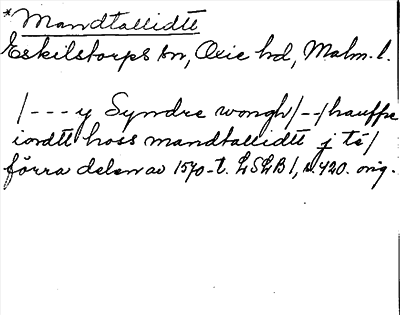 *Mandtallidtt
Eskilstorps sn, Oxie hd, Malm. l.
/--- y Syndre wongh/--/hauffue
iordtt hoss mandtallidtt j té/
förra delen av 1570-t. LSLB 1, s. 420. orig.